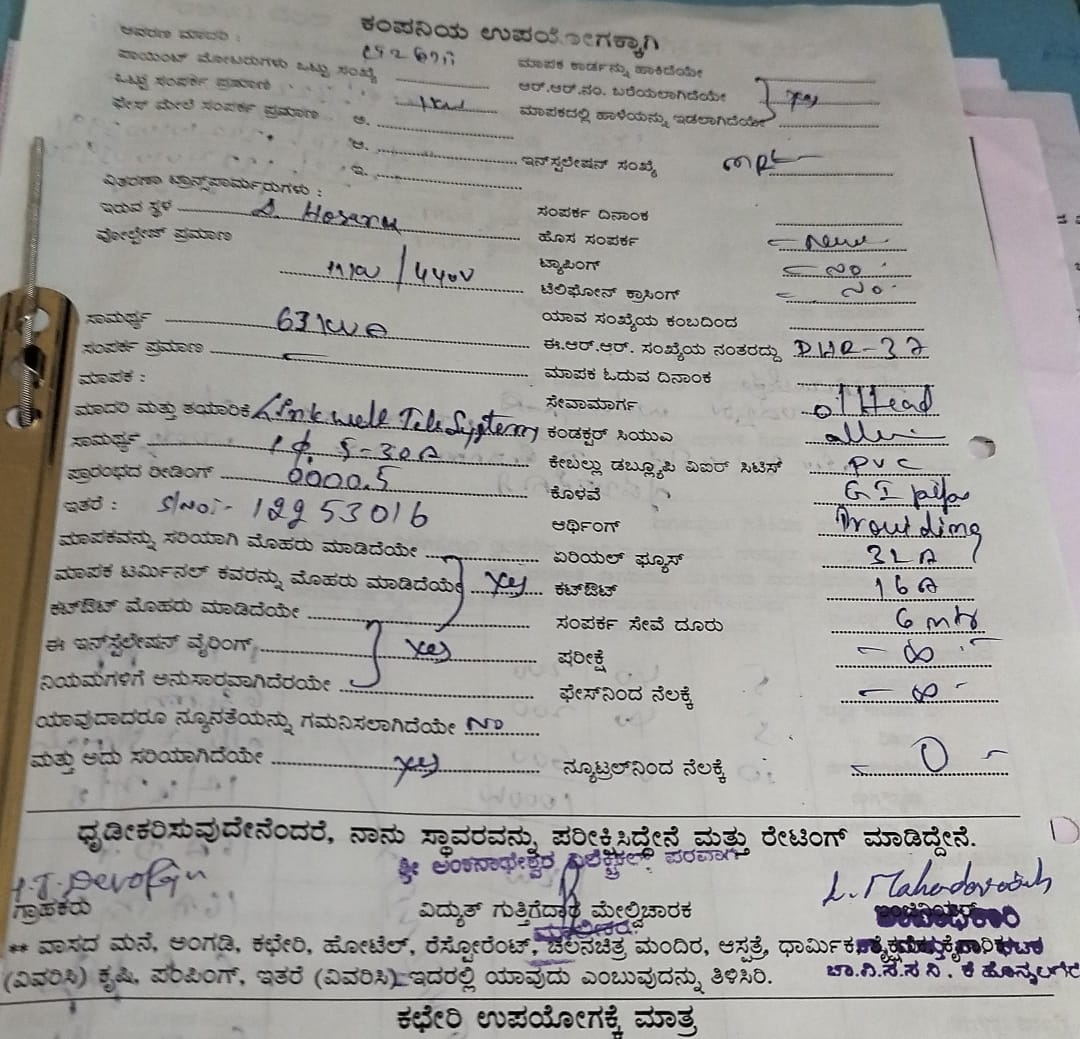 ಕಂಪನಿಯ ಉಪಯೋಗಕ್ಕಾಗಿ
ಆವರಣ ಮಾದರಿ :
ಪಾಯಿಂಟ್ ಮೋಟರುಗಳು ಒಟ್ಟು ಸಂಖ್ಯೆ
ಮಾಪಕ ಕಾರ್ಡನ್ನು ಹಾಕಿದೆಯೇ
ಒಟ್ಟು ಸಂಪರ್ಕ ಪ್ರಮಾಣ
ಆರ್.ಆರ್.ನಂ. ಬರೆಯಲಾಗಿದೆಯೇ yes
ಫೇಸ್ ಮೇಲೆ ಸಂಪರ್ಕ ಪ್ರಮಾಣ ಅ.
ಮಾಪಕದಲ್ಲಿ ಹಾಳೆಯನ್ನು ಇಡಲಾಗಿದೆಯೇ
ಆ.
ಇ.
ಇನ್‌ಸ್ಟಲೇಷನ್ ಸಂಖ್ಯೆ
ವಿತರಣಾ ಟ್ರಾನ್ಸ್‌ಫಾರ್ಮರುಗಳು :
ಇರುವ ಸ್ಥಳ D. Hosaru
ಸಂಪರ್ಕ ದಿನಾಂಕ
ವೋಲ್ಟೇಜ್ ಪ್ರಮಾಣ
ಹೊಸ ಸಂಪರ್ಕ - New
11 KV / 440V
ಟ್ಯಾಪಿಂಗ್ - NO
ಟೆಲಿಫೋನ್ ಕ್ರಾಸಿಂಗ್ - NO
ಸಾಮರ್ಥ್ಯ 63 KVA
ಯಾವ ಸಂಖ್ಯೆಯ ಕಂಬದಿಂದ
ಸಂಪರ್ಕ ಪ್ರಮಾಣ
ಈ.ಆರ್.ಆರ್. ಸಂಖ್ಯೆಯ ನಂತರದ್ದು DHR-37
ಮಾಪಕ :
ಮಾಪಕ ಓದುವ ದಿನಾಂಕ
ಮಾದರಿ ಮತ್ತು ತಯಾರಿಕೆ Linkwell Tele Systems
ಸೇವಾಮಾರ್ಗ o/Head
ಸಾಮರ್ಥ್ಯ 1 ф. 5-30A
ಕಂಡಕ್ಟರ್ ಸಿಯುವಿ
ಪ್ರಾರಂಭದ ರೀಡಿಂಗ್ 0000.5
ಕೇಬಲ್ಲು ಡಬ್ಲ್ಯೂಪಿ ವಿಐಆರ್ ಸಿಟಿಸ್ PVC
ಇತರೆ : S/No:- 12253016
ಕೊಳವೆ GI pipe
ಆರ್ಥಿಂಗ್ Prouiding
ಮಾಪಕವನ್ನು ಸರಿಯಾಗಿ ಮೊಹರು ಮಾಡಿದೆಯೇ
ಏರಿಯಲ್ ಫ್ಯೂಸ್ 32A
ಮಾಪಕ ಟರ್ಮಿನಲ್ ಕವರನ್ನು ಮೊಹರು ಮಾಡಿದೆಯೇ yes
ಕಟ್‌ಔಟ್ 16A
ಕಟ್‌ಔಟ್ ಮೊಹರು ಮಾಡಿದೆಯೇ
ಸಂಪರ್ಕ ಸೇವೆ ದೂರು 6 mtr
ಈ ಇನ್‌ಸ್ಟಲೇಷನ್ ವೈರಿಂಗ್ yes
ಪರೀಕ್ಷೆ - ∞ -
ನಿಯಮಗಳಿಗೆ ಅನುಸಾರವಾಗಿದೆರಯೇ
ಫೇಸ್‌ನಿಂದ ನೆಲಕ್ಕೆ - ∞ -
ಯಾವುದಾದರೂ ನ್ಯೂನತೆಯನ್ನು ಗಮನಿಸಲಾಗಿದೆಯೇ NO
ಮತ್ತು ಅದು ಸರಿಯಾಗಿದೆಯೇ yes
ನ್ಯೂಟ್ರಲ್‌ನಿಂದ ನೆಲಕ್ಕೆ - 0 -
ಧೃಡೀಕರಿಸುವುದೇನೆಂದರೆ, ನಾನು ಸ್ಥಾವರವನ್ನು ಪರೀಕ್ಷಿಸಿದ್ದೇನೆ ಮತ್ತು ರೇಟಿಂಗ್ ಮಾಡಿದ್ದೇನೆ.
ಶ್ರೀ ಅಂಕನಾಥೇಶ್ವರ ಎಲೆಕ್ಟ್ರಿಕಲ್ ಪರವಾಗಿ
L. Mahadevaiah
ಗ್ರಾಹಕರು
ವಿದ್ಯುತ್ ಗುತ್ತಿಗೆದಾರ ಮೇಲ್ವಿಚಾರಕ
ಮಾಲೀಕರು
** ವಾಸದ ಮನೆ, ಅಂಗಡಿ, ಕಛೇರಿ, ಹೋಟೆಲ್, ರೆಸ್ಟೋರೆಂಟ್, ಚಲನಚಿತ್ರ ಮಂದಿರ, ಆಸ್ಪತ್ರೆ, ಧಾರ್ಮಿಕ
(ವಿವರಿಸಿ) ಕೃಷಿ, ಪಂಪಿಂಗ್, ಇತರೆ (ವಿವರಿಸಿ) ಇದರಲ್ಲಿ ಯಾವುದು ಎಂಬುವುದನ್ನು ತಿಳಿಸಿರಿ.
ಚಾ.ವಿ.ಸ.ಸ.ನಿ. ಕೆ ಹೊನ್ನಲಗೆರೆ
ಕಛೇರಿ ಉಪಯೋಗಕ್ಕೆ ಮಾತ್ರ